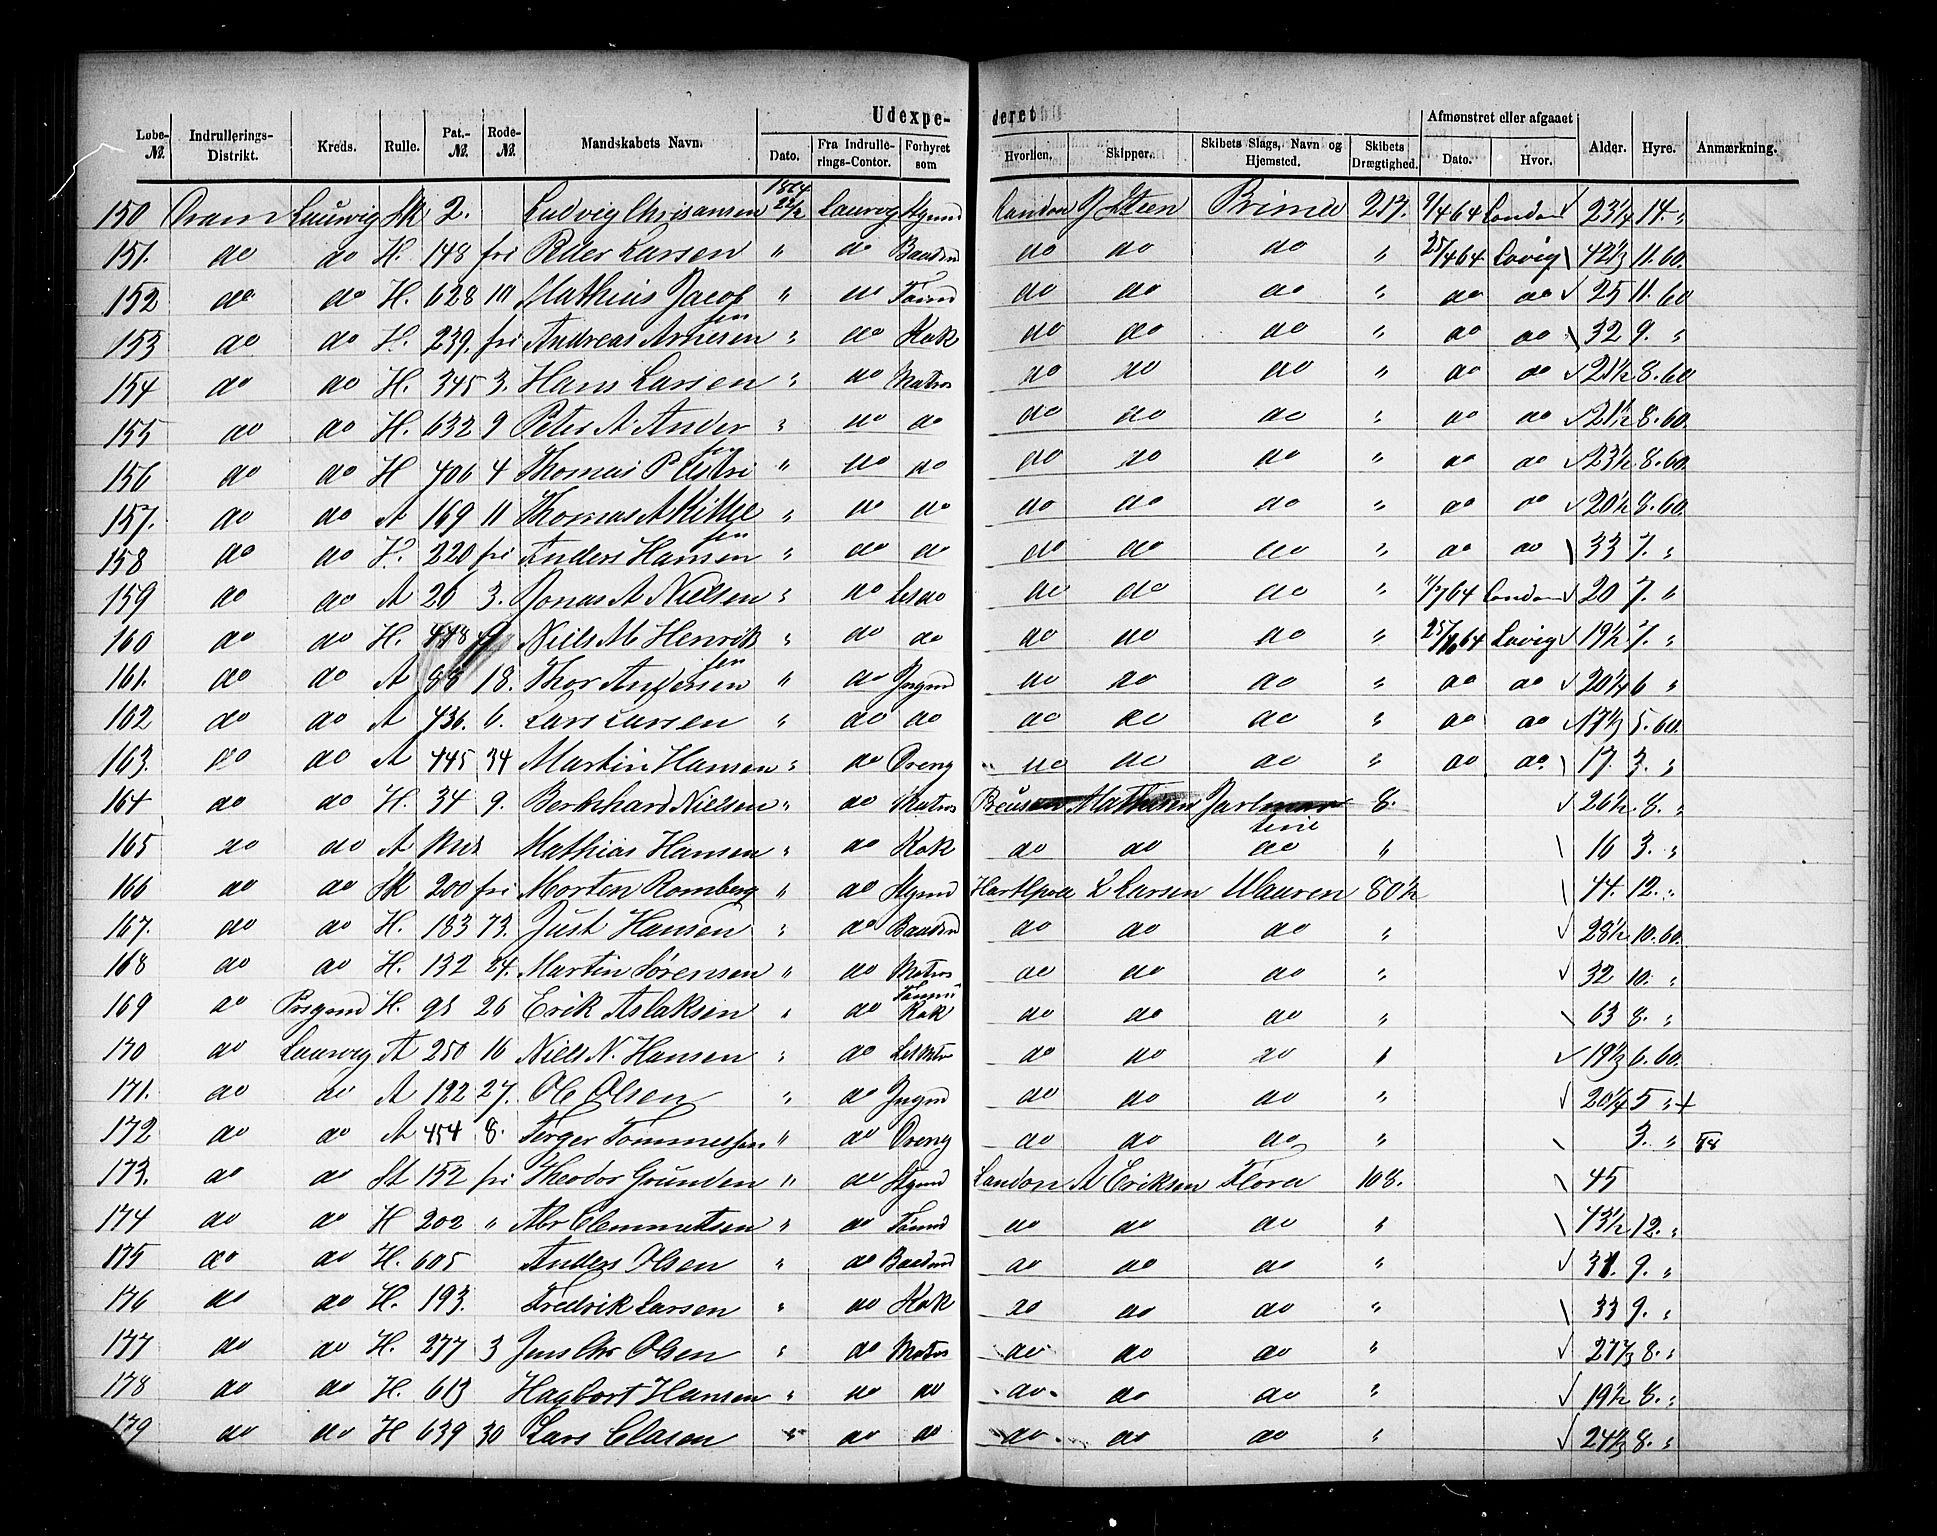 Udexpe- deret
Løbe-№. Indrullerings-Distrikt. Kreds. Rulle. Pat.-№. Rode-№. Mandskabets Navn. Dato. Fra Indrullerings-Contor. Forhyret som Hvorhen. Skipper. Skibets Slags, Navn og Hjemsted. Skibets Drægtighed. Afmønstret eller afgaaet Dato. Hvor. Alder. Hyre. Anmærkning.
150 Dram Laurvig Sk 2. Ludvig Chrisansen 1864 Laurvig Stymd London Steen Prima 217. 9/4 64 London 23¼ 14. "
151. do do H. 148 fri Peder Larsen " do Baadsmd do do do " 25/4 64 Lavig 42⅓ 11.60.
152 do do H. 628 10 Mathias Jacobsen " do Tømd do do do " do do 25 11.60
153 do do H. 239. fri Andreas Arnesen " do Kok do do do " do do 32 9. "
154 do do H. 345 3. Hans Larsen " do Matros do do do " do do 21½ 8.60
155 do do H. 632 9 Peter A. Andersen " do do do do do " do do 8.60.
156 do do H 406 4 Thomas P " do do do do do " do do 23½ 8.60.
157. do do A 169 11 Thomas A Kittelsen " do do do do do " do do 20½ 8.60.
158 do do H. 220 fri Anders Hansen " do do do do do " do do 33 7. "
159 do do A 26 3. Jonas A Nielsen " do do do do " 64 London 20 7. "
160 do do H. 448 9 Niels M Henriksen " do do do do do " 64 Lavig 19½ 7. "
161. do do A 88 18. Thor Andersen " do Jngmd do do do " do do 20¼ 6 "
162 do do A 436. 6. Lars Larsen " do do do do do " do do 17½ 5.60.
163. do do A 445 34 Martin Hansen " do Dreng do do do " do do 17. 3. "
164 do do H. 34 9. Bernhard Nielsen " do Matros Mathisen 8. 26½ 8. "
165 do do A Mathias Hansen " do Kok do do do " 16 3. "
166 do do Sk 200 fri Morten Romberg " do Stymd Hartlpool L Larsen 80½ 44. 12. "
167. do do H. 183 73. Just Hansen " do Baadsmd do do do " 28½ 10.60.
168 do do H. 132 24. Martin Sørensen " do Matros do do do " 32 10. "
169 do Prsgrund H. 98 26 Erik Aslaksen " do Kok do do do " 63 8. "
170 do Laurvig A 250 16 Niels N. Hansen " do do do do " 19⅓ 6.60.
171. do do A 182 27. Ole Olsen " do Jngmd do do do " 20¼ 5 " +
172 do do A 454 8. Terger Tommessen " do Dreng do do do " 3. "
173. do do St 152 fri Theodor Grunden " do Stymd London A Eriksen Flora 108. 45
174 do do H 202 " Abr Clemmetsen " do Tømd do do do " 43½ 12. "
175 do do H. 605 Anders Olsen " do Baadsmd do do do " 31. 9. "
176 do do H. 193. Fredrik Larsen " do Kok do do do " 33 9. "
177 do do H. 277 3 Jens Chr Olsen " do Matros do do do " 8. "
178 do do H. 613 Hagbart Hansen " do do do do do " 19½ 8. "
179 do do H 639 30 Lars Clasen " do do do do do " 24⅓ 8. "